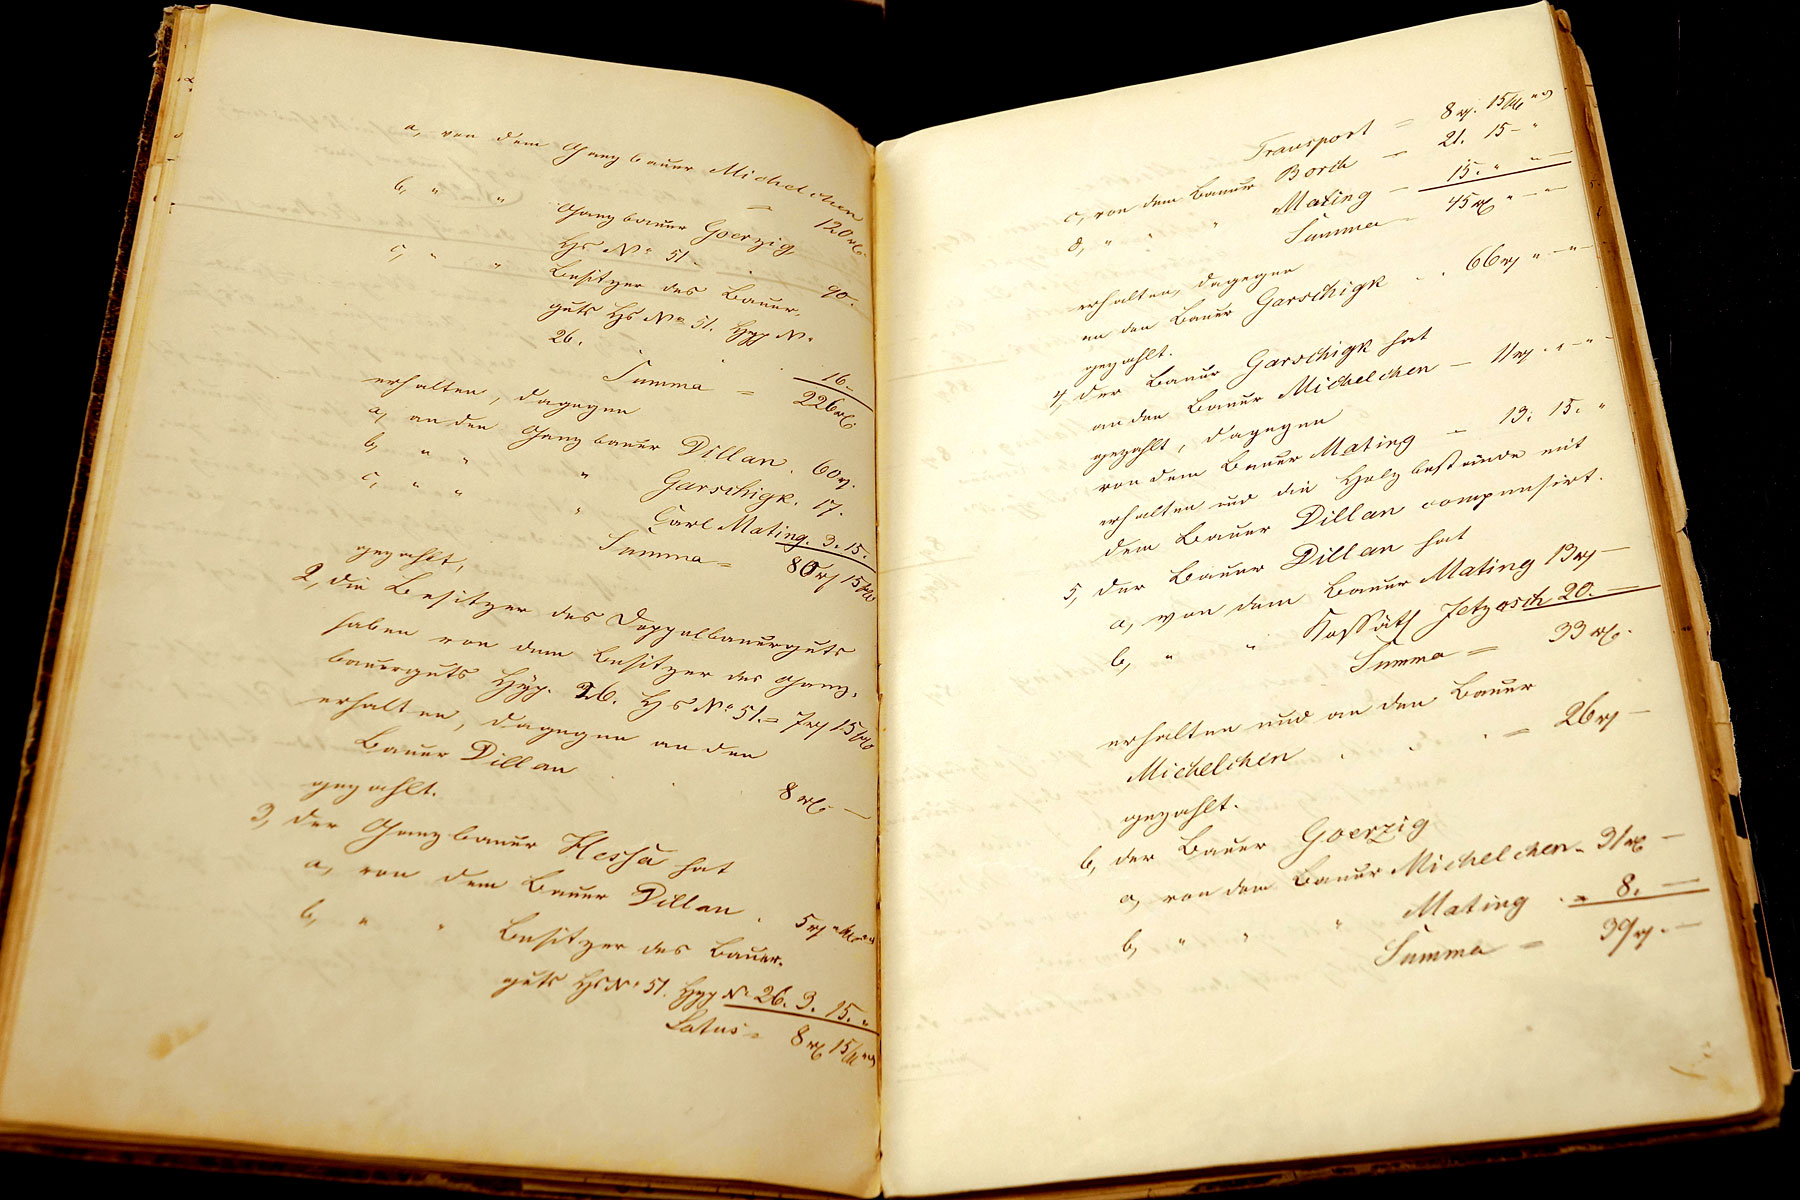 a, von dem Ganzbauer Michelchen
= 120 rℓ.
b, " " Ganzbauer Goerzig
Hs No 51. 90.
c, " " Besitzer des Bauer-
guts Hs No 51. Hyp N.
26. 16.
Summa = 226 rℓ.
erhalten, dagegen
a, an den Ganzbauer Dillan. 60 rℓ.
b, " " " Garschigk. 17.
c, " " " Carl Mating. 3. 15.
Summa = 80 rℓ 15
gezahlt,
2, die Besitzer des Doppelbauerguts
haben von dem Besitzer des Ganz-
bauerguts Hyp. 26. Hs No 51. = 7 rℓ 15
erhalten, dagegen an den
Bauer Dillan 8 rℓ. —
gezahlt.
3, der Ganzbauer Hessa hat
a, von dem Bauer Dillan . 5 rℓ
b, " " Besitzer des Bauer-
guts Hs No 51. Hyp No 26. 3. 15. "
Latus = 8 rℓ 15
Transport = 8 rℓ. 15
c, von dem Bauer Borch — 21. 15 — "
d, " " " Mating — 15. " " —
Summa — 45 rℓ " — " —
erhalten, dagegen
an den Bauer Garschigk . . 66 rℓ " — " —
gezahlt.
4, der Bauer Garschigk hat
an den Bauer Michelchen — 11 rℓ. " — " —
gezahlt, dagegen
von dem Bauer Mating — 13. 15. "
erhalten und die Holzbestände mit
dem Bauer Dillan compensirt.
5, der Bauer Dillan hat
a, von dem Bauer Mating 13 rℓ —
b, " " Kossäth Jetzosch 20. —
Summa = 33 rℓ.
erhalten und an den Bauer
Michelchen . . . = 26 rℓ —
gezahlt.
6, der Bauer Goerzig
a, von dem Bauer Michelchen = 31 rℓ —
b, " " " Mating . = 8. —
Summa = 39 rℓ. —